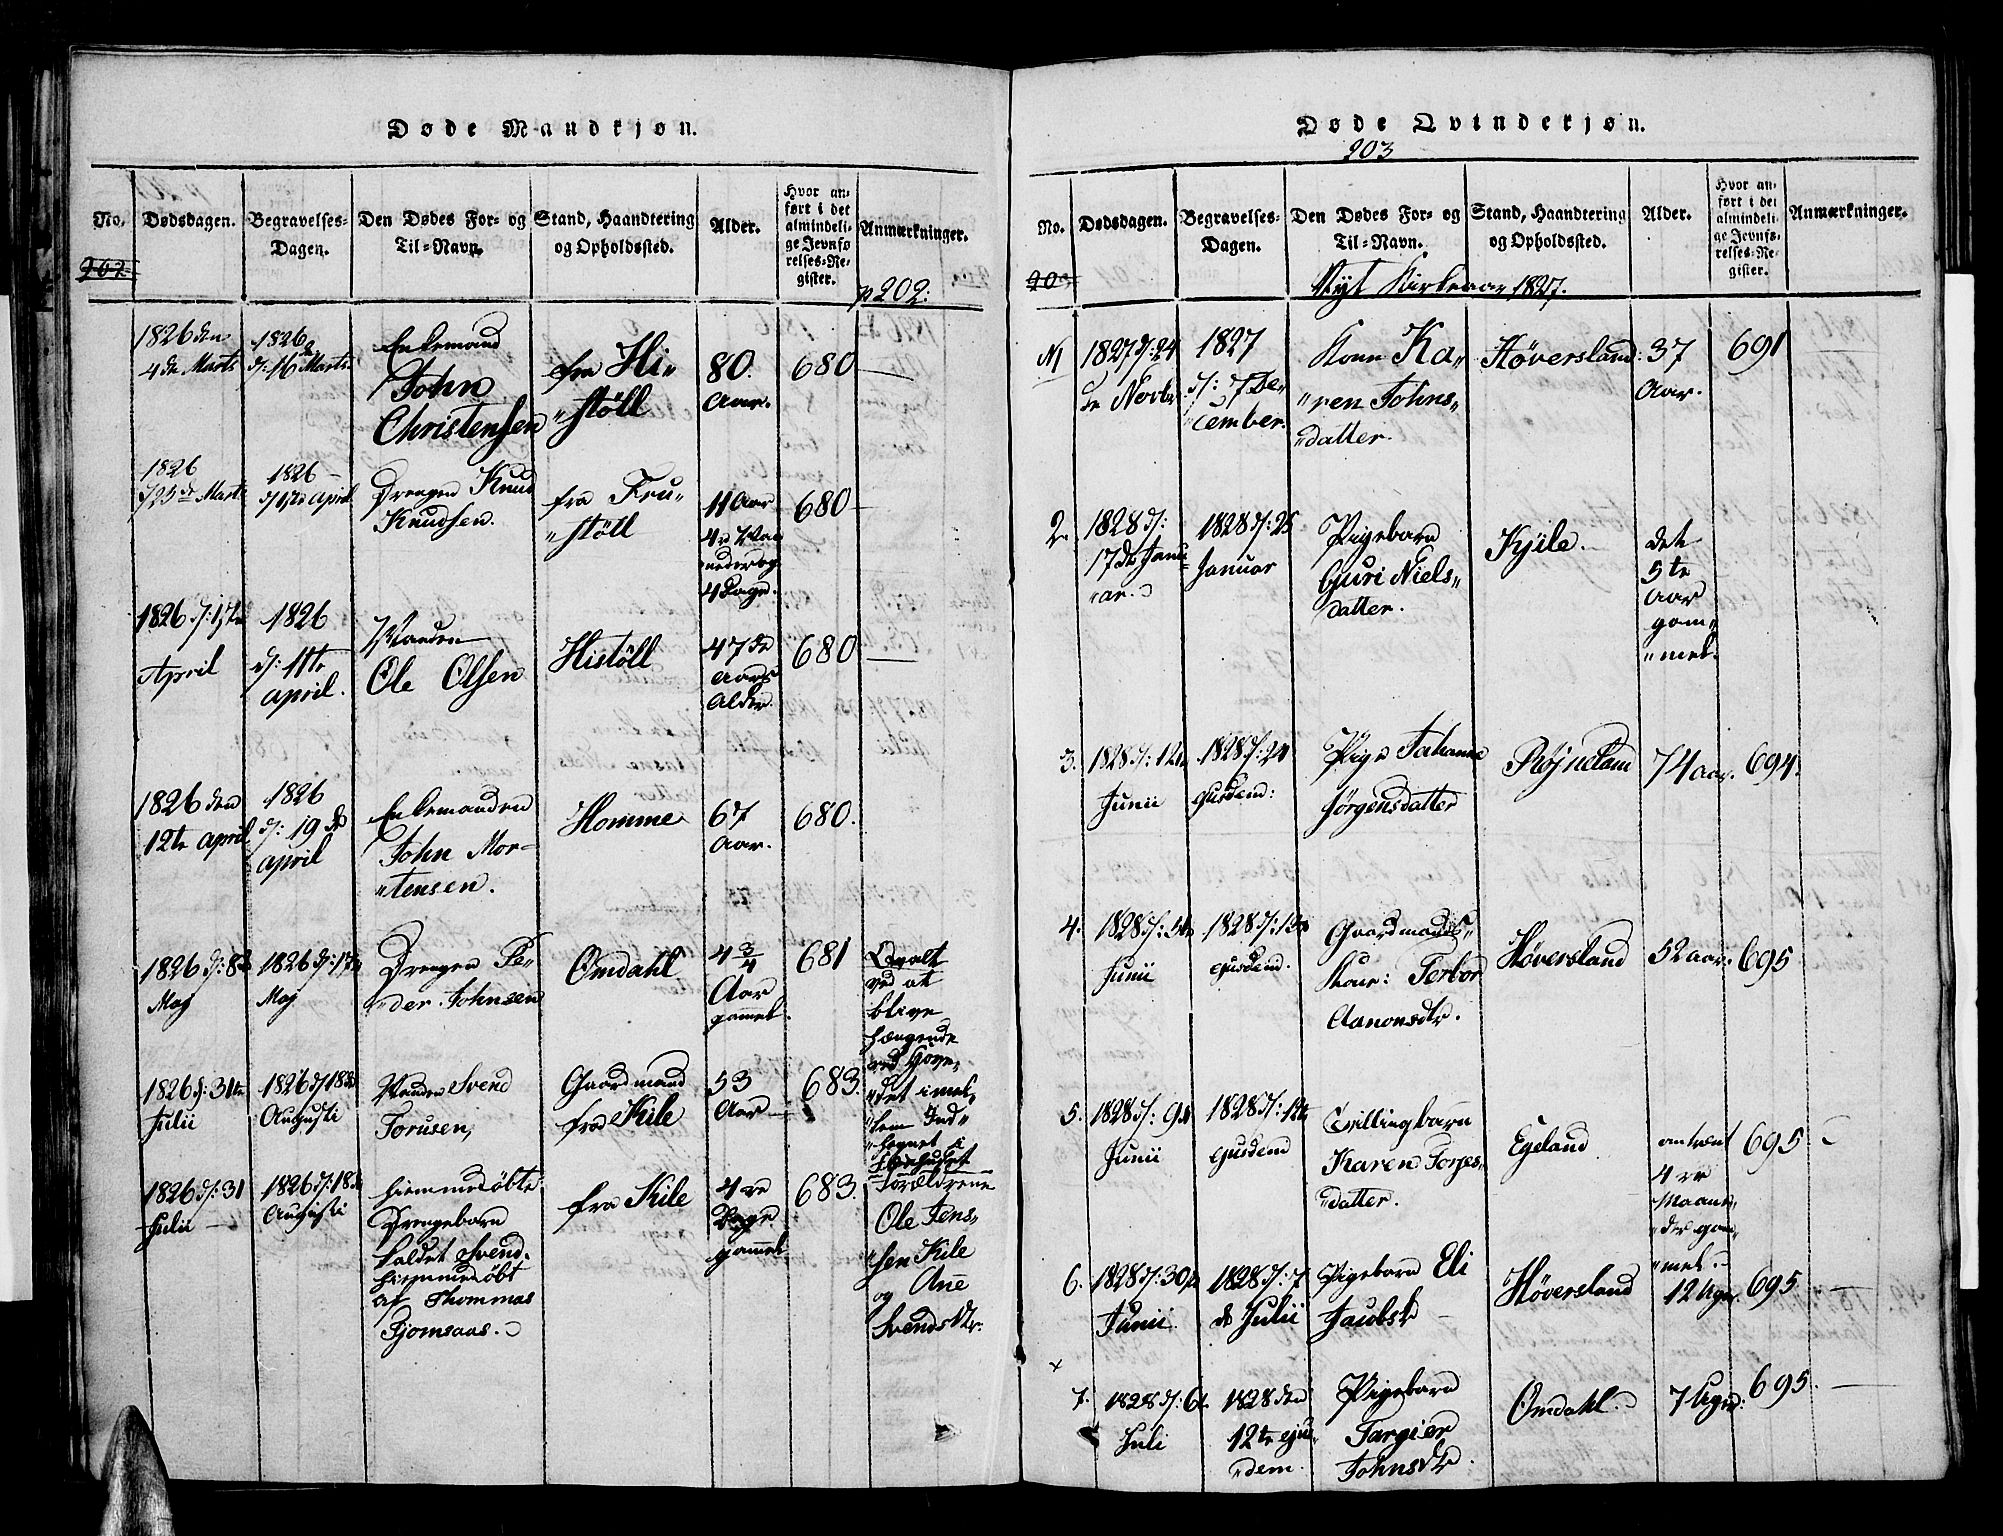 Døde Mandkjøn.
No.
Dødsdagen.
Begravelses-
Dagen.
Den Dødes For- og
Til-Navn.
Stand, Haandtering
og Opholdssted.
Alder.
Hvor an-
ført i det
almindeli-
ge Jevnfø
relses-Re-
gister.
Anmærkninger.
202
p 202:
1826 den
4de Marts
1826
d: 16 Marts
Enkemand
John
Christensen
fra Hi-
"stöll
80.
Aar.
680
1826
d 25de Marts
1826
April
Drengen Knud
Knudsen.
fra Fru"
"stöll
11 Aar
4re Maa
neder og
4 Dage.
680
1826 d:
April
1826
d: 11te
April.
Manden
Ole Olsen
Histöll
47de
Aars
Alder.
680
1826 den
12te April
1826
d: 19de
April
Enkemanden
John Mor-
"tensen.
Homme
67
Aar.
680.
1826 d: 8de
Maj
1826 d: 17de
Maj
Drengen Pe-
"der Johnsen
Omdahl
4 3/4
Aar
gammel.
681
Qvalt
ved at
blive
hængende
ved Hove,
"det imel,
"lem
1826 d: 31te
Julii
1826 d 18de
Augusti
Manden Svend
Torusen,
Gaardmand
fra Kile
53
Aar
683.
1826 d: 31
Julii
1826 d: 18de
Augusti
hiemmedøbte
Drengebarn
kaldet Svend.
hiemmedøbt
af Thommas
Fjomsaas.
fra Kile
4re
Dage
gammel
683.
Forældrene
Ole Jens"
"sen Kile
og Ane
Svends Dtr.
Døde Qvindekjøn.
203
No.
Dødsdagen.
Begravelses-
Dagen.
Den Dødes For- og
Til-Navn.
Stand, Haandtering
og Opholdssted.
Alder.
Hvor an-
ført i det
almindeli-
ge Jevnfø-
relses-Re-
gister.
Anmærkninger.
203
Nyt Kirkeaar 1827.
N1
1827 d: 24
de Novbr
1827
d: 7 De"
"cember.
Kone Ka"
"ren Johns"
"datter.
Höversland
37
Aar.
691
2
1828 d:
17de Janu-
"ar.
1828 d: 25
Januar
Pigebarn
Guri Niels"
datter.
Kyile.
det
5te
Aar
gam"
"mel.
3.
1828 d: 12te
Junii
1828 d: 24
ejusdem:
Pige Johanne
Jörgensdatter
Röjneland
74 aar.
694.
4.
1828 d: 5te
Junii
1828 d: 13de
ejusdem.
Gaardmands"
kone: Terbor
Aanonsdtr.
Höversland
52 aar.
695
5.
1828 d: 9de
Junii
1828 d: 12te
ejusdem
Tvillingbarn
Karen Torjes"
"datter.
Egeland
omtrent
4re
Maane"
"der gam"
"mel.
695
6.
1828 d: 30te
Junii
1828 d: 7
de Julii
Pigebarn Eli
Höversland
12 Uger.
695
7.
1828 d: 6te
Juli
1828 den
12te eju"
"dem.
Pigebarn
Targier
Johns Dtr.
Omdahl.
7 Uger:
695.